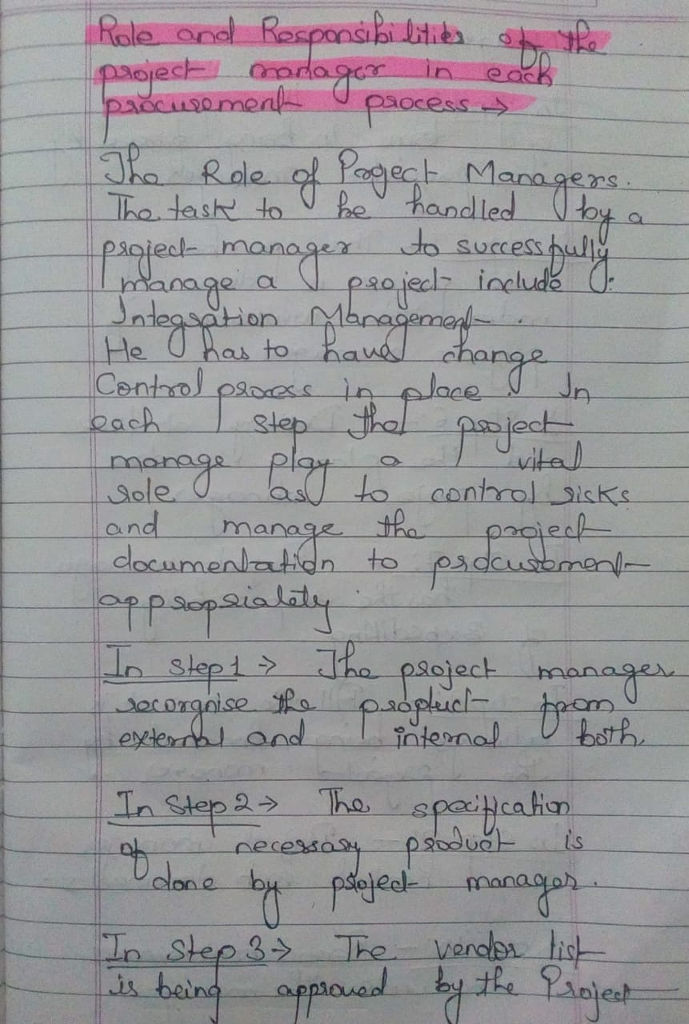 Role and Responsibilities of the
project manager in each
procurement process →
The Role of Project Managers.
The task to be handled by a
project manager to successfully
manage a project include :
Integration Management.
He has to have change
Control process in place. In
each step the project
manage play a vital
role as to control risks
and manage the project
documentation to procurement
appropriately
In Step 1 → The project manager
recorgnise the product from
external and internal both.
In Step 2 → The specification
of necessary product is
done by project manager.
In Step 3 → The vendor list
is being approved by the Project